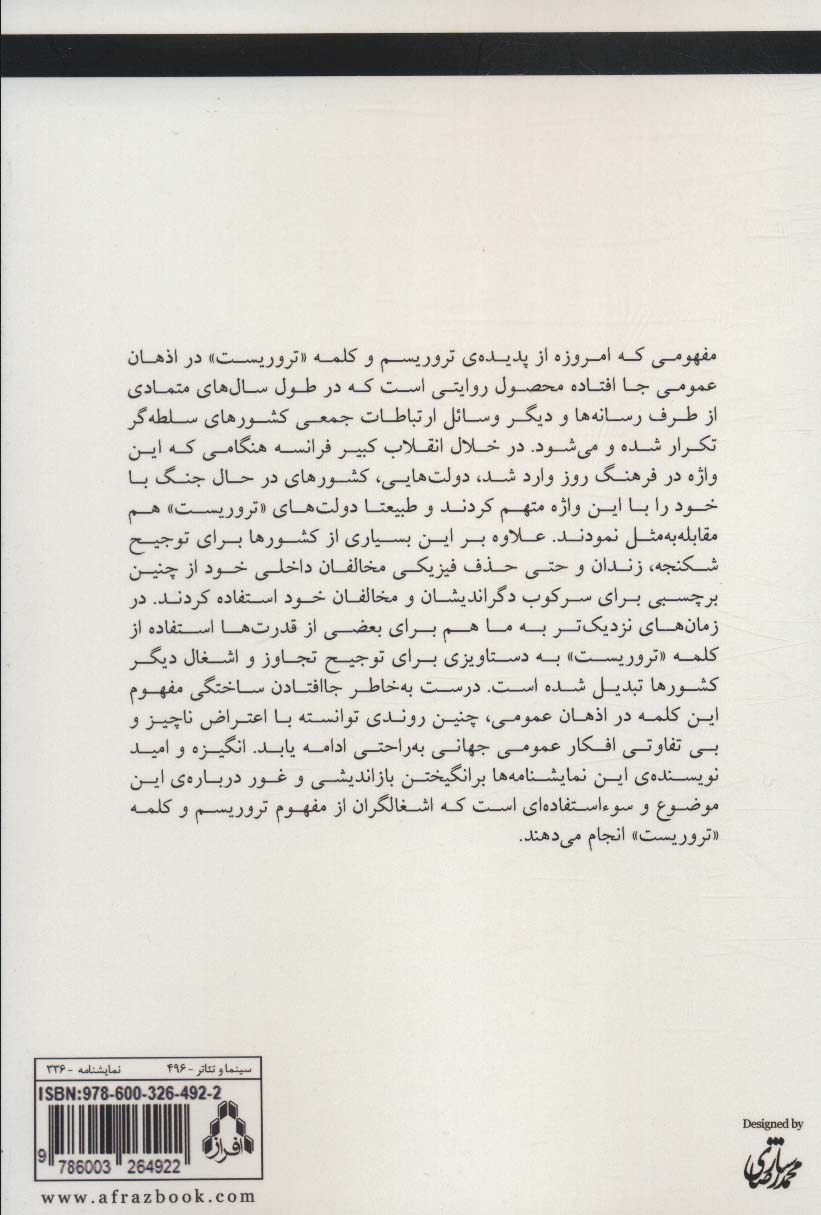 مفهومی که امروزه از پدیده‌ی تروریسم و کلمه «تروریست» در اذهان
عمومی جا افتاده محصول روایتی است که در طول سال‌های متمادی
از طرف رسانه‌ها و دیگر وسائل ارتباطات جمعی کشورهای سلطه‌گر
تکرار شده و می‌شود. در خلال انقلاب کبیر فرانسه هنگامی که این
واژه در فرهنگ روز وارد شد، دولت‌هایی، کشورهای در حال جنگ با
خود را با این واژه متهم کردند و طبیعتا دولت‌های «تروریست» هم
مقابله‌به‌مثل نمودند. علاوه بر این بسیاری از کشورها برای توجیح
شکنجه، زندان و حتی حذف فیزیکی مخالفان داخلی خود از چنین
برچسبی برای سرکوب دگراندیشان و مخالفان خود استفاده کردند. در
زمان‌های نزدیک‌تر به ما هم برای بعضی از قدرت‌ها استفاده از
کلمه «تروریست» به دستاویزی برای توجیح تجاوز و اشغال دیگر
کشورها تبدیل شده است. درست به‌خاطر جاافتادن ساختگی مفهوم
این کلمه در اذهان عمومی، چنین روندی توانسته با اعتراض ناچیز و
بی تفاوتی افکار عمومی جهانی به‌راحتی ادامه یابد. انگیزه و امید
نویسنده‌ی این نمایشنامه‌ها برانگیختن بازاندیشی و غور درباره‌ی این
موضوع و سوءاستفاده‌ای است که اشغالگران از مفهوم تروریسم و کلمه
«تروریست» انجام می‌دهند.
سینما و تئاتر - ۴۹۶ نمایشنامه - ۳۳۶
ISBN:978-600-326-492-2
افراز
9 786003 264922
www.afrazbook.com
Designed by